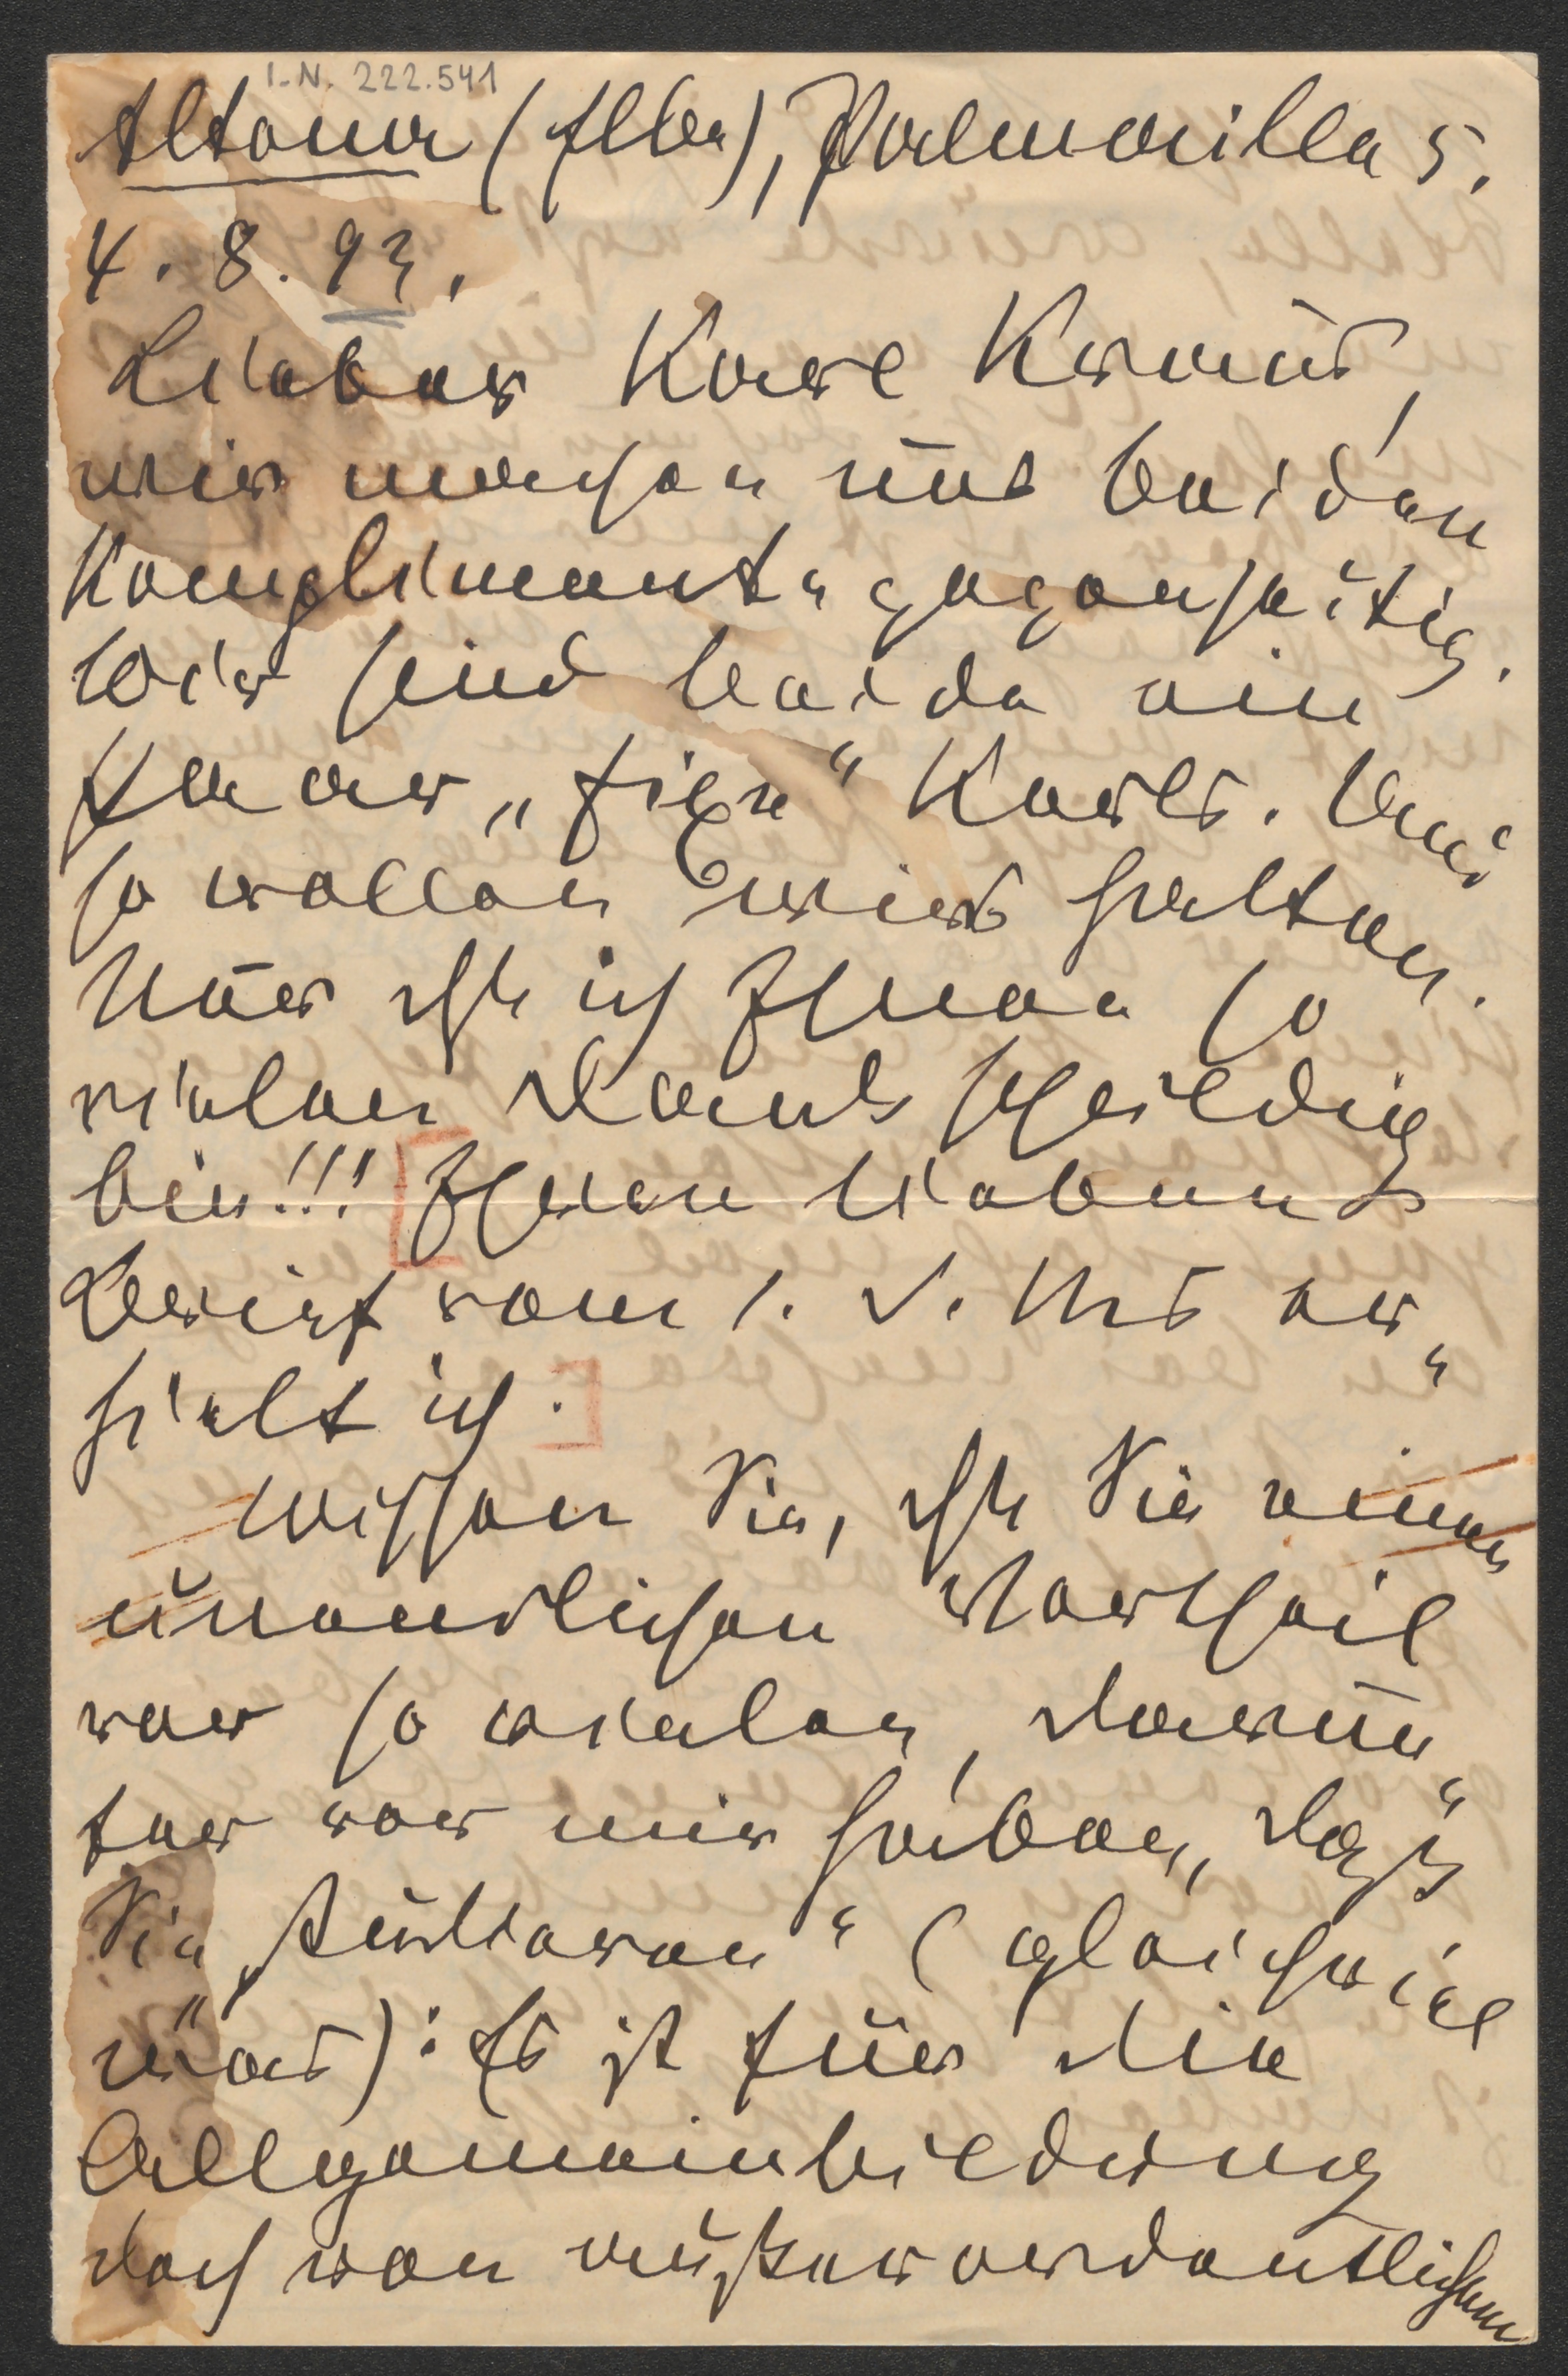 I.N. 222.541
Altona (Elbe), Palmaille 5.
4. 8. 93.
Lieber Karl Kraus,
wir machen uns beiden
Komplimente gegenseitig.
Wir sind beide ein
Paar „fixe“ Kerls. Und
so wollen wirs halten.
Nur daß ich Ihnen so
vielen Dank schuldig
bin!!! Ihren lieben
Brief vom 1. d. Mts er„
hielt ich.
Wissen Sie, daß Sie einen
unendlichen Vortheil
vor so vielen, darun„
ter vor mir haben, daß
Sie „studieren“ (gleichviel
was): Es ist für die
Allgemeinbildung
doch von außerordentlichem